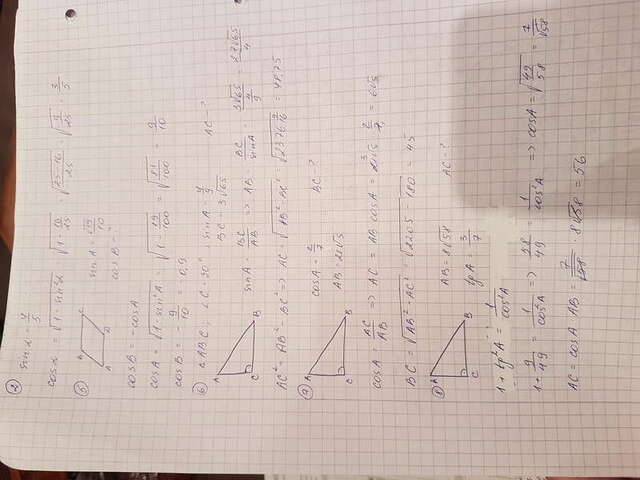 2 sin α = 4/5
cos α = √(1 - sin²α) = √(1 - 16/25) = √((25 - 16)/25) = √(9/25) = 3/5
5 sin A = √19/10
cos B - ?
cos B = - cos A
cos A = √(1 - sin²A) = √(1 - 19/100) = √(81/100) = 9/10
cos B = - 9/10 = - 0,9
6 △ABC ∠C = 90° AC - ?
BC = 3√65
sin A = BC/AB => AB = BC/sin A =
AC² = AB² - BC² => AC = √(AB² - BC²)
A B C
7 AC/AB
AB = 21√5 BC - ?
cos A = AC/AB => AC = AB cos A
BC = √(AB² - AC²) = √(2205 - 180) = 45
A B C
8 AB = 8√58 AC = ?
tg A = 3/7
A B C
1 + tg²A = 1/cos²A
1 + 9/49 = 1/cos²A => 58/49 = 1/cos²A => cos A = √(49/58) = 7/√58
AC = cos A · AB = 7/√58 · 8√58 = 56